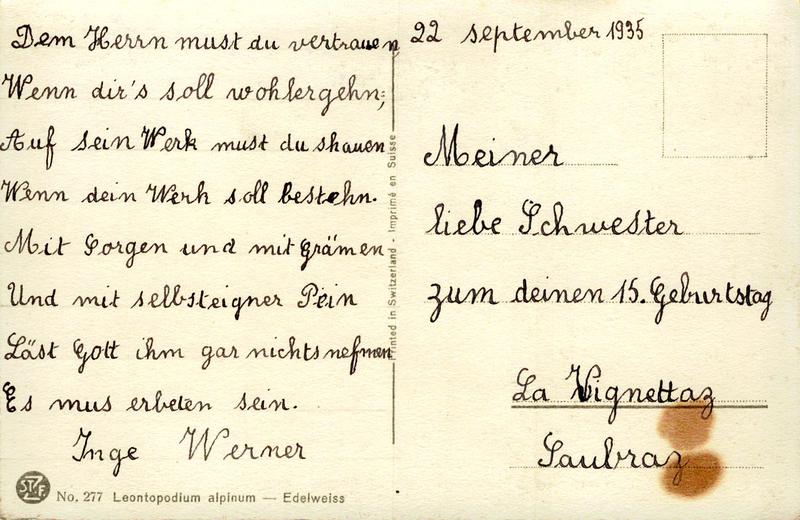 Dem Herrn must du vertrauen
Wenn dir's soll wohlergehn;
Auf sein Werk must du shauen
Wenn dein Werk soll bestehn.
Mit Sorgen und mit Grämen
Und mit selbsteigner Pein
Läst Gott ihm gar nichts nefmen
Es mus erbeten sein.
Inge Werner
No. 277 Leontopodium alpinum — Edelweiss
Printed in Switzerland - Imprimé en Suisse
22 september 1935
Meiner
liebe Schwester
zum deinen 15. Geburtstag
La Vignettaz
Saubraz